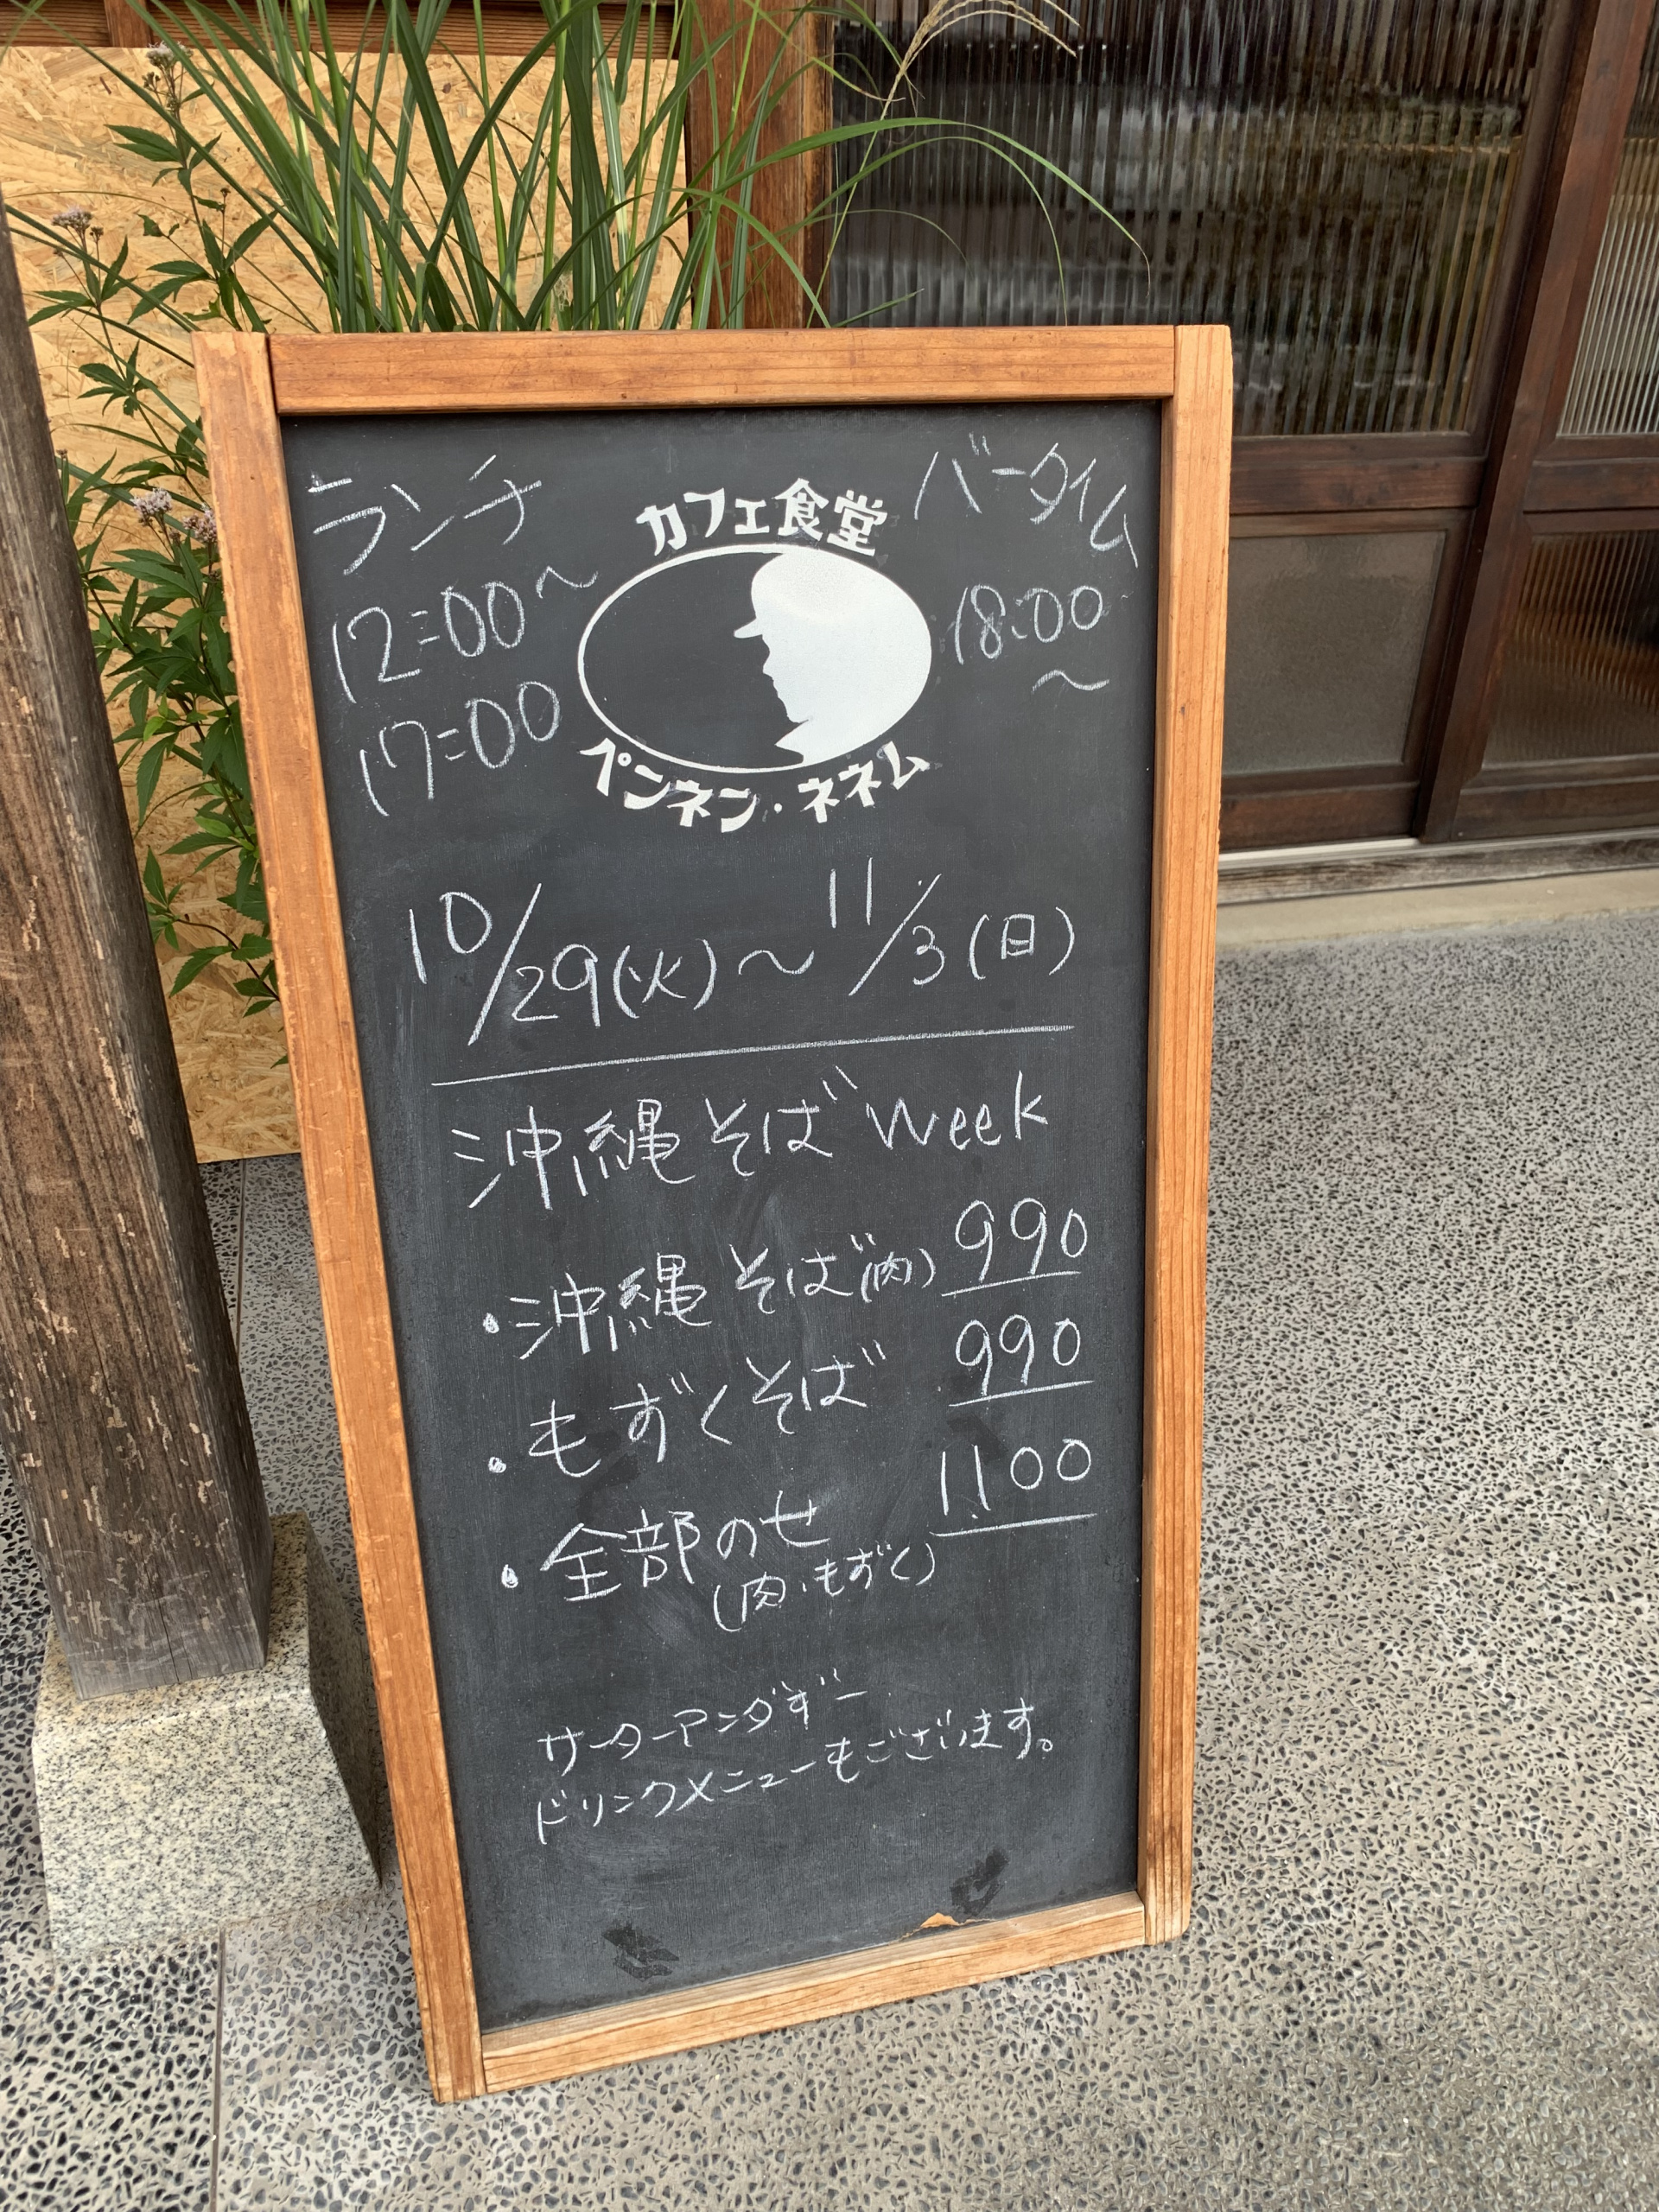 ランチ
12:00〜
17:00
カフェ食堂
ペンネン・ネネム
バータイム
18:00
〜
10/29(火)〜11/3(日)
沖縄そばWeek
・沖縄そば(肉) 990
・もずくそば 990
・全部のせ 1100
(肉・もずく)
サーターアンダギー
ドリンクメニューもございます。